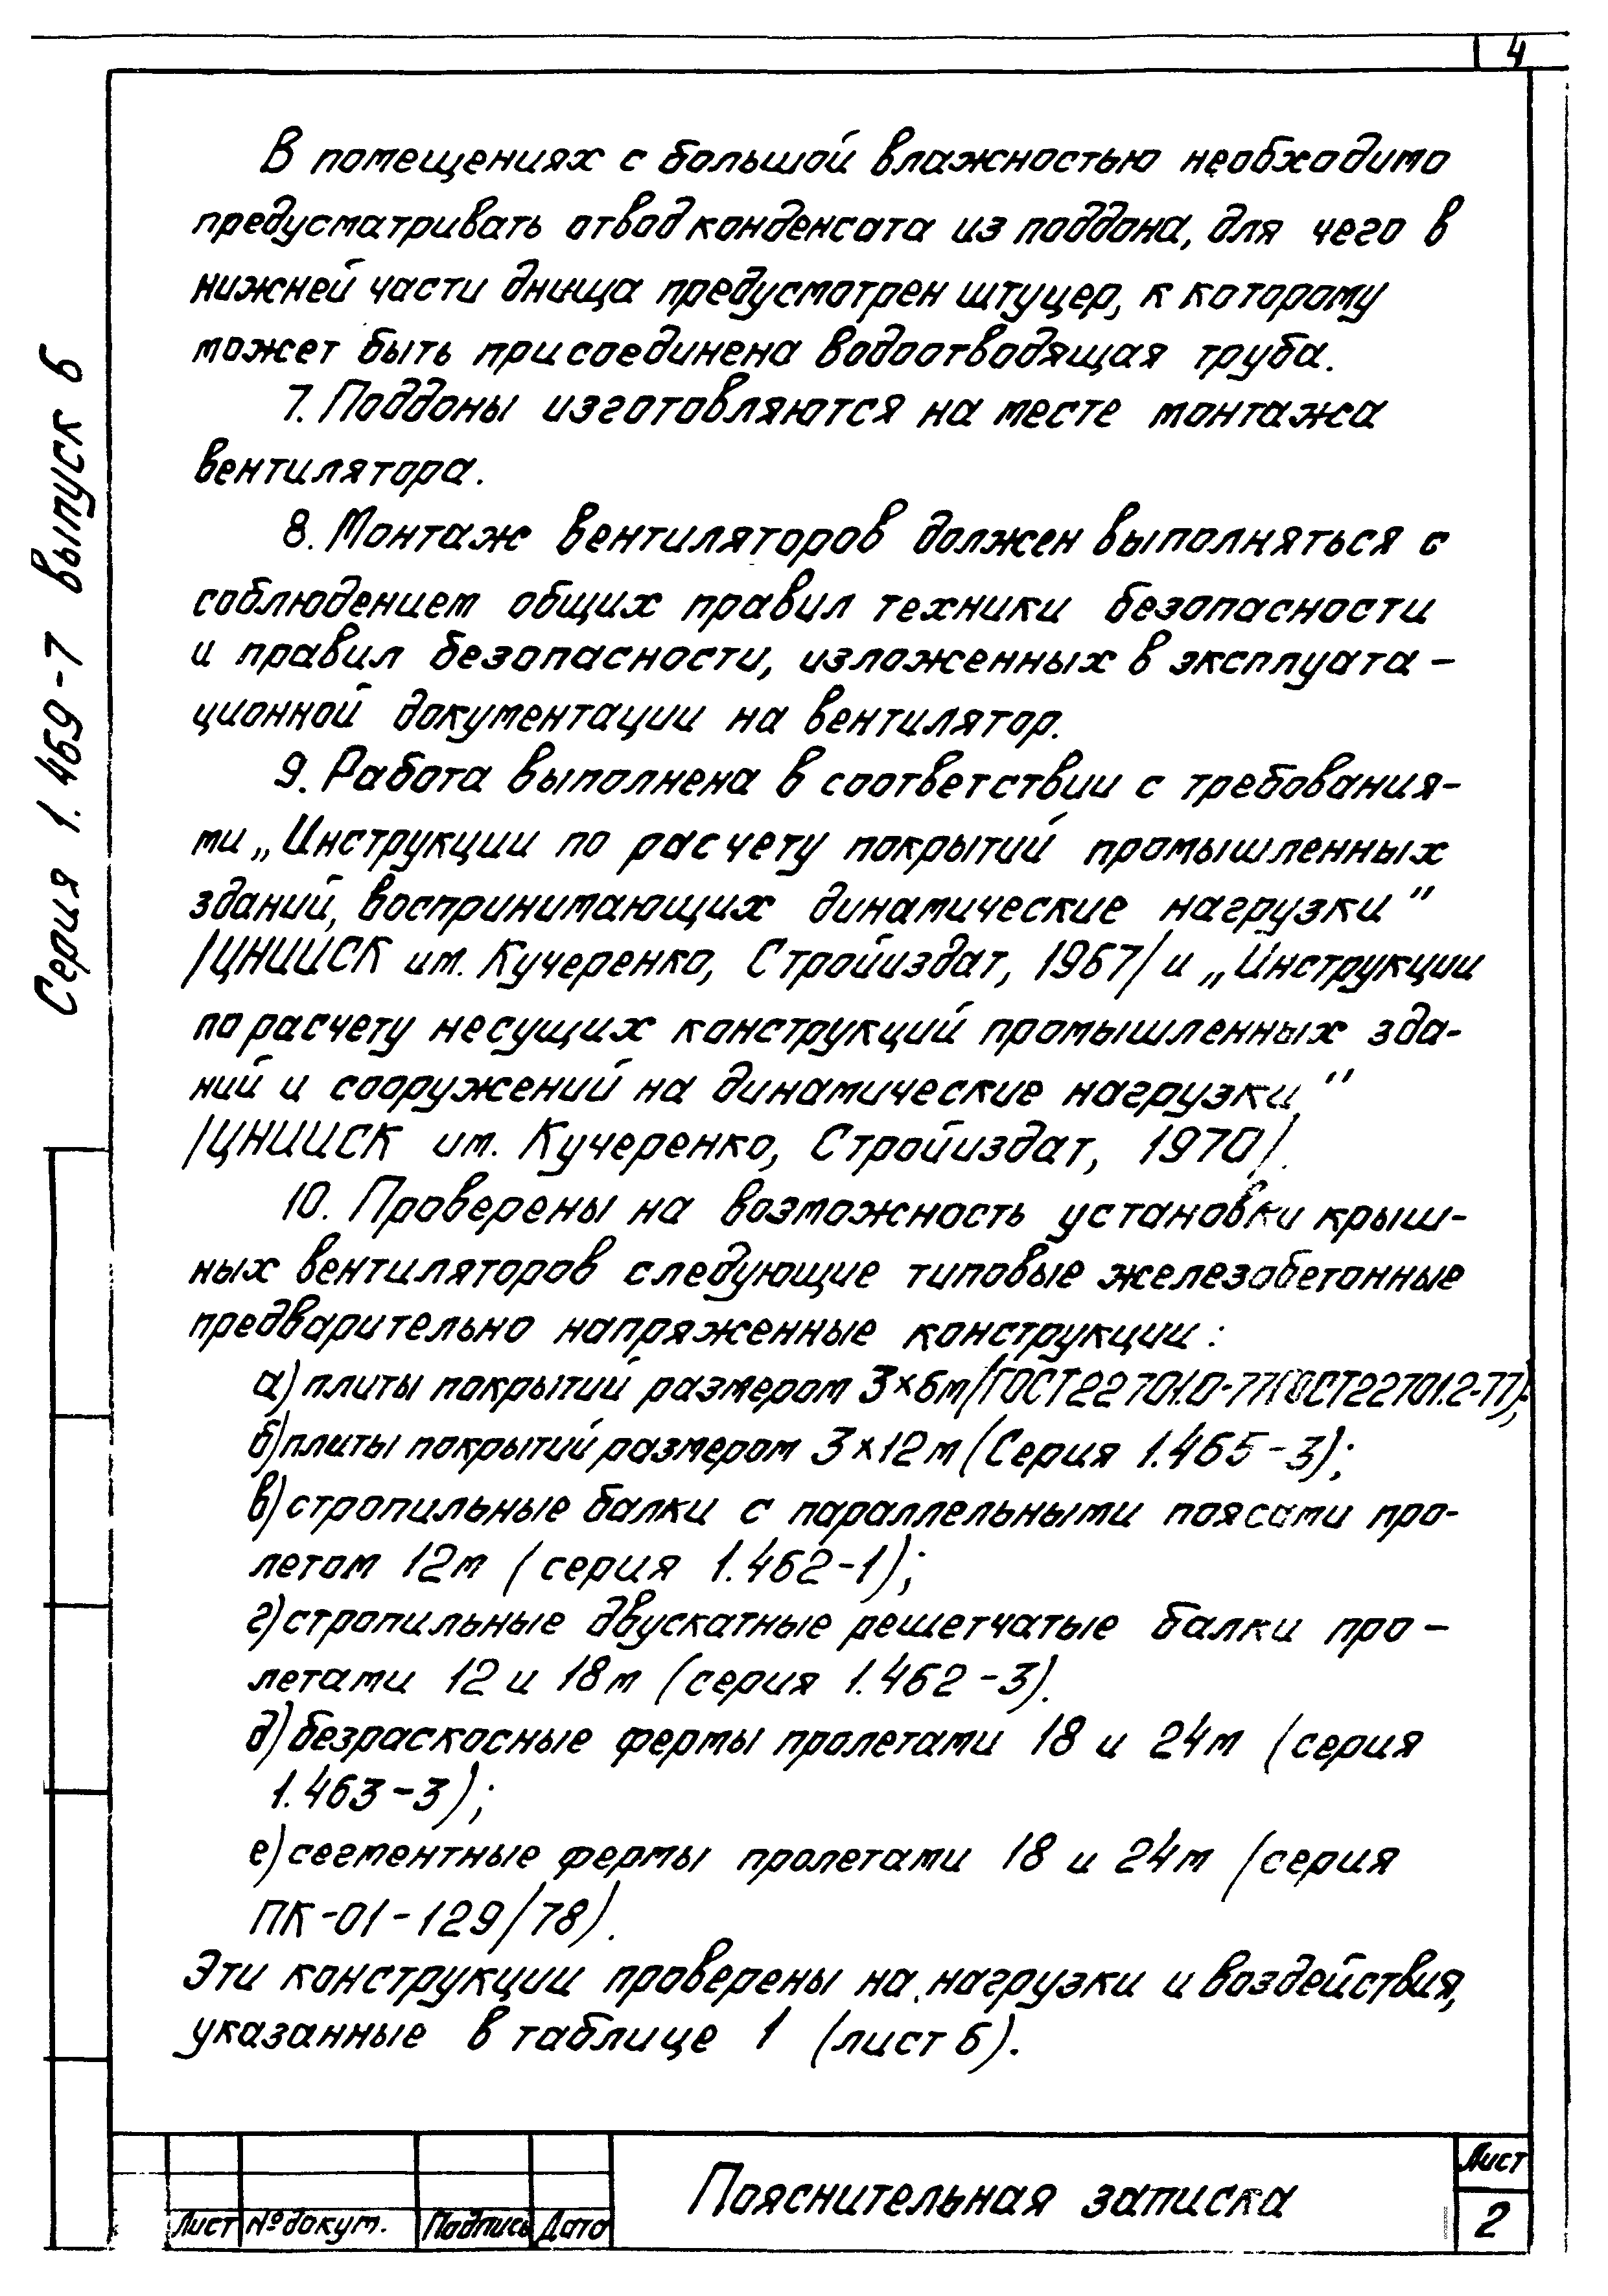 4
В помещениях с большой влажностью необходимо
предусматривать отвод конденсата из поддона, для чего в
нижней части днища предусмотрен штуцер, к которому
может быть присоединена водоотводящая труба.
7. Поддоны изготовляются на месте монтажа
вентилятора.
8. Монтаж вентиляторов должен выполняться с
соблюдением общих правил техники безопасности
и правил безопасности, изложенных в эксплуата-
ционной документации на вентилятор.
9. Работа выполнена в соответствии с требования-
ми „Инструкции по расчету покрытий промышленных
зданий, воспринимающих динамические нагрузки"
/ЦНИИСК им. Кучеренко, Стройиздат, 1967/ и „Инструкции
по расчету несущих конструкций промышленных зда-
ний и сооружений на динамические нагрузки"
/ЦНИИСК им. Кучеренко, Стройиздат, 1970/.
10. Проверены на возможность установки крыш-
ных вентиляторов следующие типовые железобетонные
предварительно напряженные конструкции:
а) плиты покрытий размером 3×6м (ГОСТ 22701.0-77 ГОСТ 22701.2-77);
б) плиты покрытий размером 3×12м (Серия 1.465-3);
в) стропильные балки с параллельными поясами про-
летом 12м (серия 1.462-1);
г) стропильные двускатные решетчатые балки про-
летами 12 и 18м (серия 1.462-3).
д) безраскосные фермы пролетами 18 и 24м (серия
1.463-3);
е) сегментные фермы пролетами 18 и 24м (серия
ПК-01-129/78).
Эти конструкции проверены на нагрузки и воздействия,
указанные в таблице 1 (лист 6).
Серия 1.469-7 выпуск 6
Лист №докум. Подпись Дата
Пояснительная записка
Лист
2